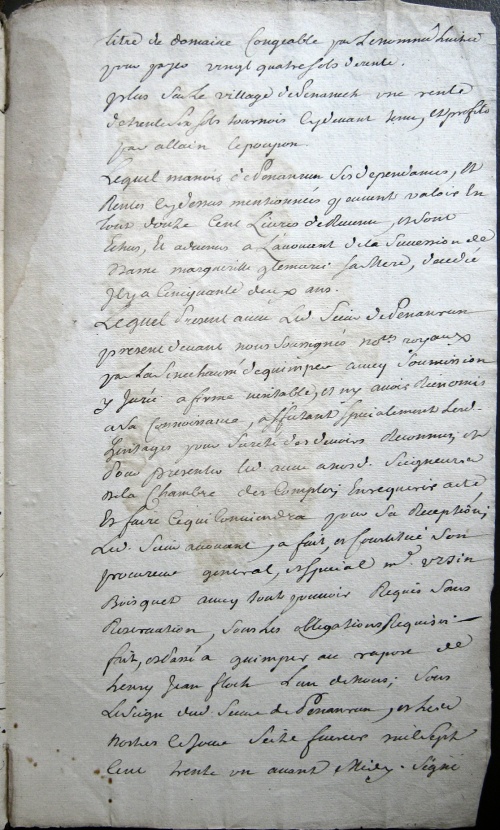 titre de domaine Congeable par Lenommé
pour payer vingt quatre sols derente.
plus sur Le village dePenanech une rente
detrente six sols tournois Cydevant tenu, et profité
par allain Lepoupon
Lequel manoir dePenanrun Ses dependances, et
Rentes Cydessus mentionnées peuvent valoir En
tout douze Cent Livres deRevenu, et sont
Echus, et advenus a Lavouant dela Succession de
Dame margueritte La Mere, decedée
Il y a Cinquante deux ans.
Lequel Present aveu Led Sieur dePenanrun
present devant nous Soussignés no.res royaux
par La Senechaussé dequimper avec Soumission
y Juré a firmé veritable, et ny avoir Rien omis
a Sa Connoissance, affectant specialement Lesd
heritages pour Sureté des devoirs Reconnus, et
Pour presenter led aveu a nosd. Seigneurs
dela Chambre des Comptes, En requerir acte
Et faire Cequi Conviendra pour Sa Reception;
Led. Sieur avouant, a fait, et Constitué Son
procureur general, et special m.e
Boisquet avec tout pouvoir Requis Sous
Reservation, Sous Les obligations Requises
fait, et passé a quimper au raport de
henry Jean floch L'un denous; Sous
Leseign dud Sieur de Penanrun, et
nostres Ce Jour Seize fevrier mil Sept
Cent trente un avant Midy. Signé